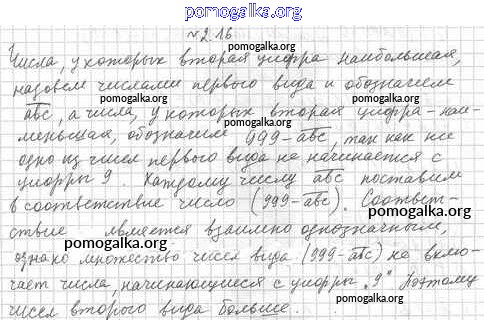 pomogalka.org
№2.16
Числа, у которых вторая цифра наибольшая,
назовем числами первого вида и обозначим
pomogalka.org pomogalka.org
abc, а числа, у которых вторая цифра - наи-
меньшая, обозначим 999-abc, так как ни
одно из чисел первого вида не начинается с
pomogalka.org
цифры 9. Каждому числу abc поставим
в соответствие число (999-abc). Соответ-
pomogalka.org
ствие является взаимно однозначным,
pomogalka.org
однако множество чисел вида (999-abc) не вклю-
чает числа, начинающиеся с цифры „9" Поэтому
чисел второго вида больше.
pomogalka.org